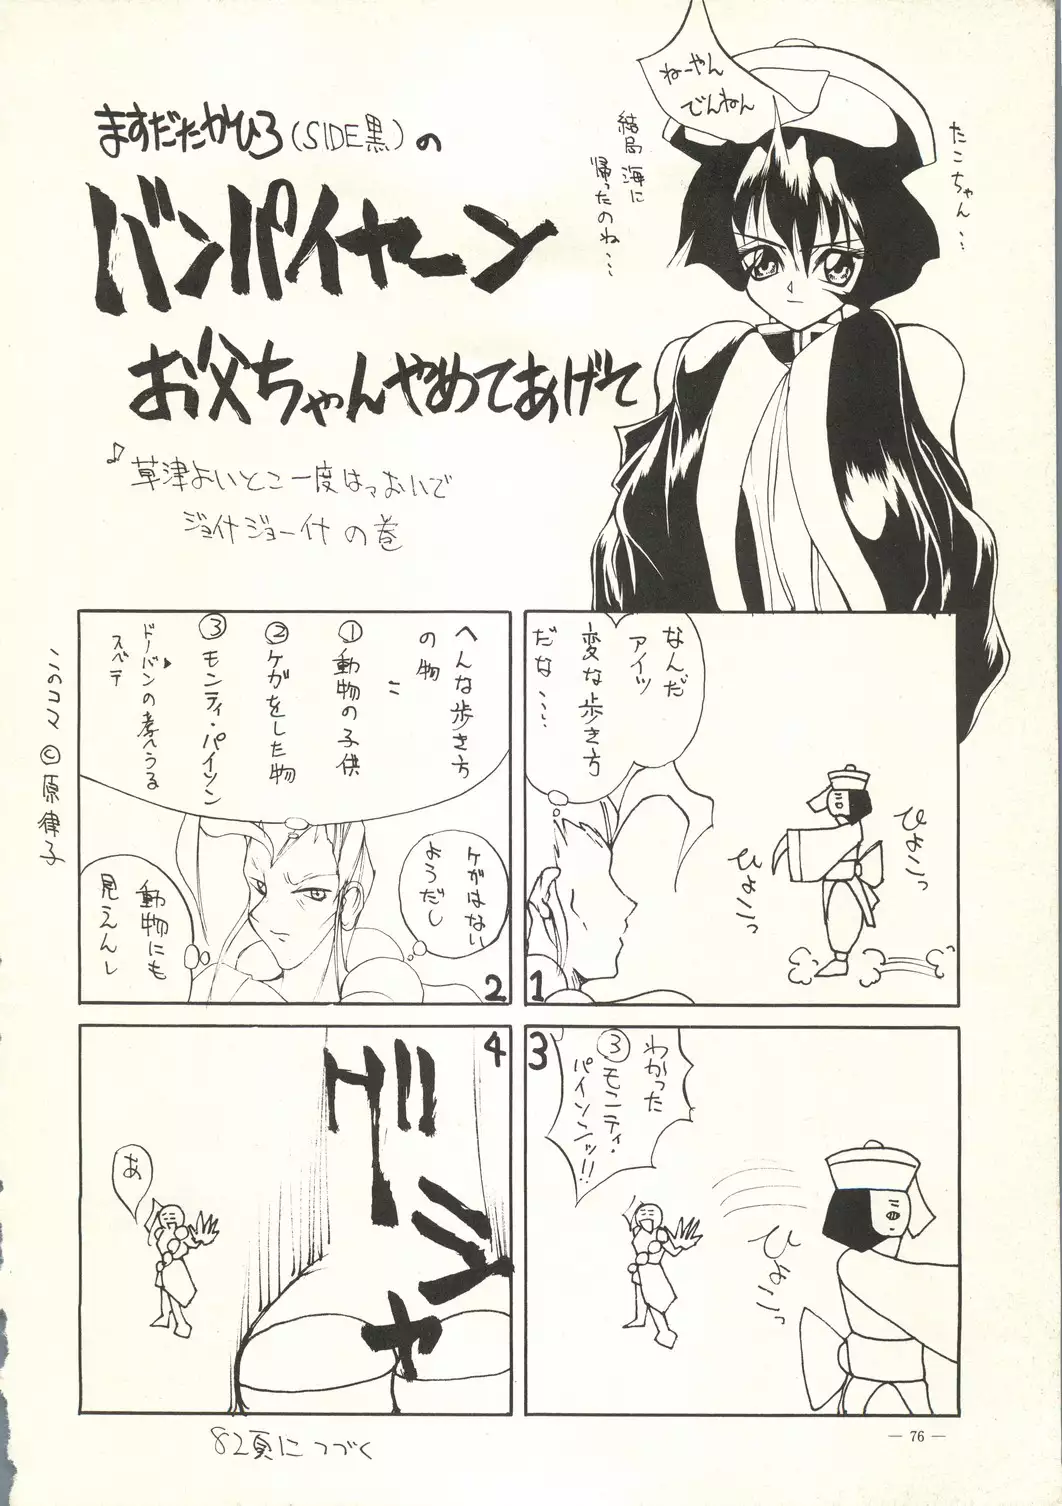 ますだたかひろ(SIDE黒)の
バンパイヤーン
お父ちゃんやめてあげて
♪草津よいとこ一度はっおいで
ジョイナジョーイナの巻
ねーやん
でんねん
たこちゃん…
結局海に
帰ったのね…
なんだ
アイツ
変な歩き方
だな……
ひょこっ
ひょこっ
1
へんな歩き方
の物
=
①動物の子供
②ケガをした物
③モンティ・パイソン
ドノバンの考へうる
スベテ
ケガはない
ようだし
動物にも
見えんし
2
このコマ©原律子
わかった
③モンティ・
パイソンッ!!
ひょこっ
3
あ
グシャ
4
82頁につづく
— 76 —